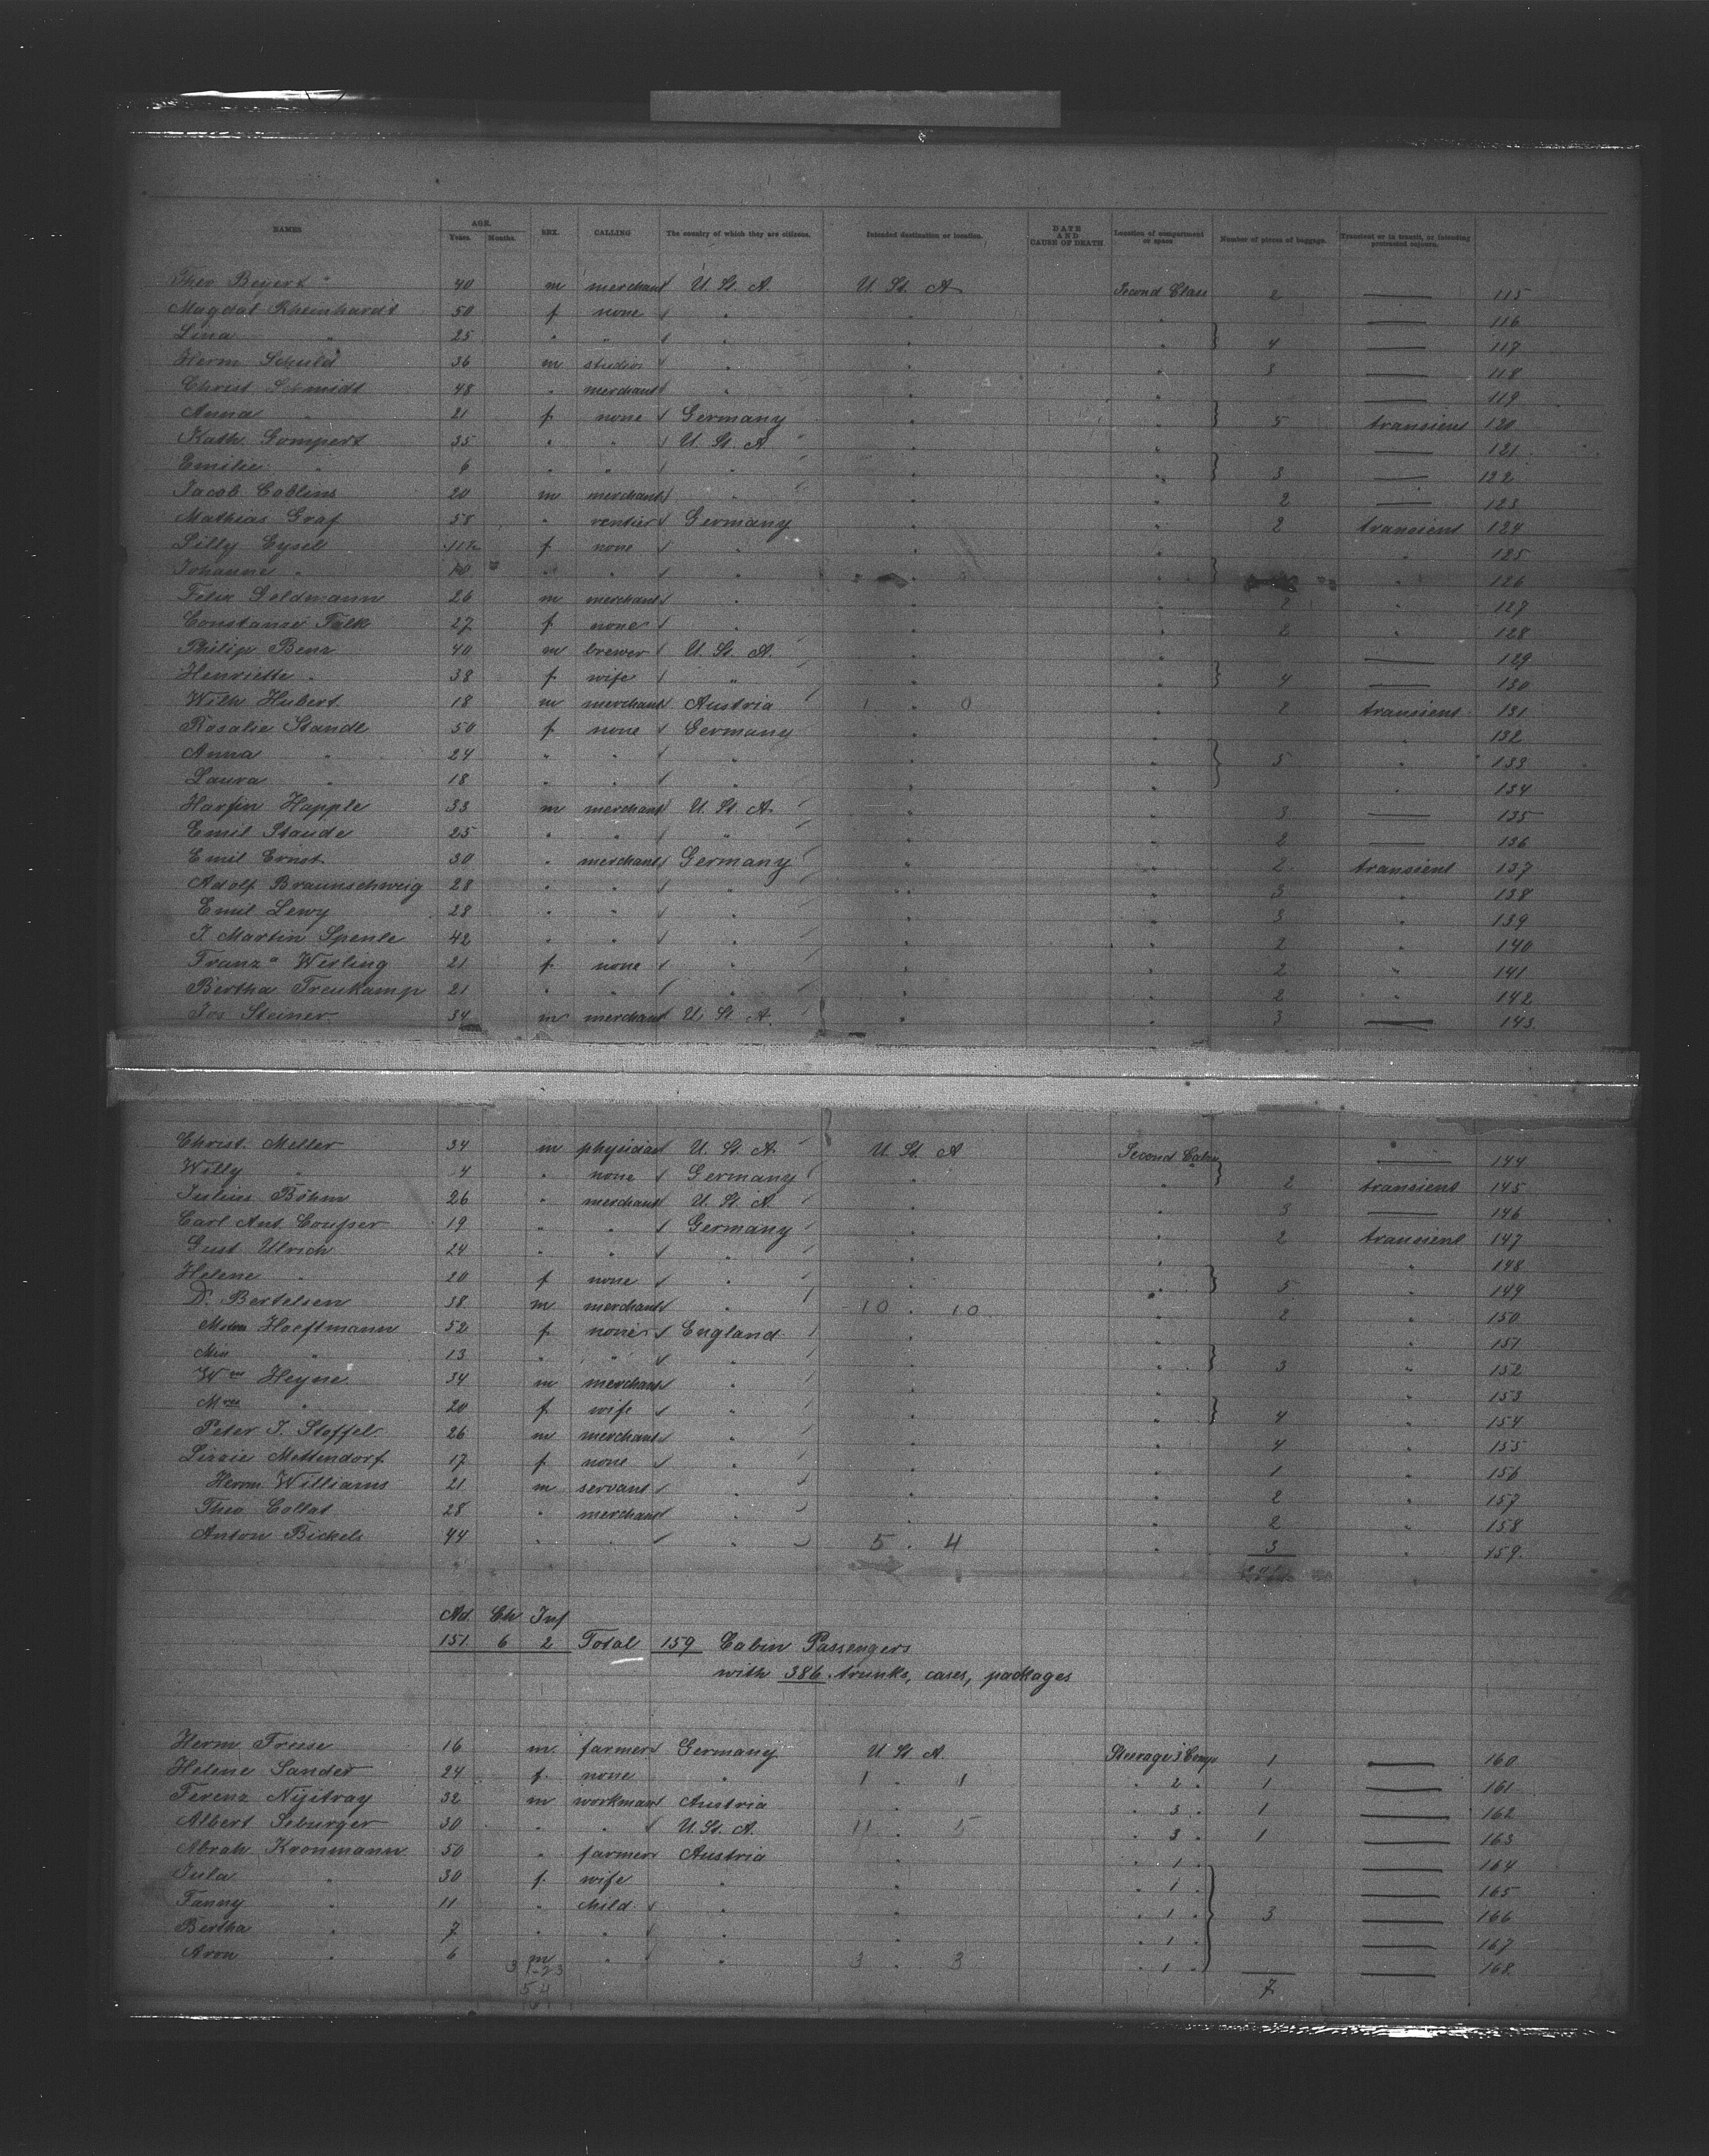 NAMES AGE. Years. Months. SEX. CALLING The country of which they are citizens. Intended destination or location. DATE AND CAUSE OF DEATH Location of compartment or space Number of pieces of baggage. Transient or in transit, or intending protracted sojourn.
Theo Beyert " 40 m merchant U. St. A. U. St. A Second Class 2 — 115
Magdal Rheinhardt 50 f none " " " — 116
Lina " 25 " " " " " } 4 — 117
Herm Schuld 36 m studios " " " 3 — 118
Christ Schmidt 48 " merchant " " " — 119
Anna " 21 f none Germany " " } 5 transient 120
Kath Gompert 35 " " U. St. A " " — 121
Emilie " 6 " " " " " } 3 — 122
Jacob Coblins 20 m merchant " " " 2 — 123
Mathias Graf 58 " rentier Germany " " 2 transient 124
Lilly Eysel f none " " " " 125
Johanne " 10 " " " " " } " 126
Felix Geldmann 26 m merchant " " " 2 " 127
Constanse Falk 27 f none " " " 2 " 128
Philip Benz 40 m brewer U. St. A. " " — 129
Henriette " 38 f wife " " " } 4 — 130
Wilh Hubert 18 m merchant Austria 1 " 0 " 2 transient 131
Rosalie Standt 50 f none Germany " " " 132
Anna " 24 " " " " " } 5 " 133
Laura " 18 " " " " " " 134
Happle 33 m merchant U. St. A. " " 3 — 135
Emil Staude 25 " " " " " 2 — 136
Emil Ernst 30 " merchant Germany " " 2 transient 137
Adolf Braunschweig 28 " " " " " 3 " 138
Emil Lewy 28 " " " " " 3 " 139
J Martin Spenle 42 " " " " " 2 " 140
Franz a Werling 21 f none " " " 2 " 141
Bertha Treukamp 21 " " " " " 2 " 142
Jos Steiner 34 m merchant U St A. " " 3 — 143
Christ. Meller 34 m physician U. St. A. U St A Second Cabin — 144
Willy " 4 " none Germany " " } 2 transient 145
Julius Böhm 26 " merchant U. St. A. " " 3 — 146
Carl Ant Couper 19 " " Germany " " 2 transient 147
Gust Ulrich 24 " " " " " " 148
Helene " 20 f none " " " } 5 " 149
D. Bertelsen 38 m merchant " 10 " 10 " 2 " 150
Hoeftmann 52 f none England " " " 151
Miss " 13 " " " " " } 3 " 152
Wm Heyne 34 m merchant " " " " 153
Mrs " 20 f wife " " " } 4 " 154
Peter J. Stoffel 26 m merchant " " " 4 " 155
Lizzie Mettendorf 17 f none " " " 1 " 156
Herm Williams 21 m servant " " " 2 " 157
Theo Collat 28 " merchant " " " 2 " 158
Anton Bickels 44 " " " 5 " 4 " 3 " 159
Ad. Ch Inf
151 6 2 Total 159 Cabin Passengers
with 386 trunks, cases, packages
Herm Friese 16 m farmer Germany U St A. Steerage 3 Comp 1 — 160
Helene Sander 24 f none " 1 " 1 " 2 " 1 — 161
Ferenz Nyitray 32 m workman Austria " " 3 " 1 — 162
Albert Seburger 30 " " U. St. A. 11 " 5 " 3 " 1 — 163
Abrah Kronmann 50 " farmer Austria " " 1 " — 164
Jula " 30 f wife " " " 1 " — 165
Fanny " 11 " child " " " 1 " } 3 — 166
Bertha " 7 " " " " " 1 " — 167
Aron " 6 m " " 3 " 3 " 1 " — 168
7